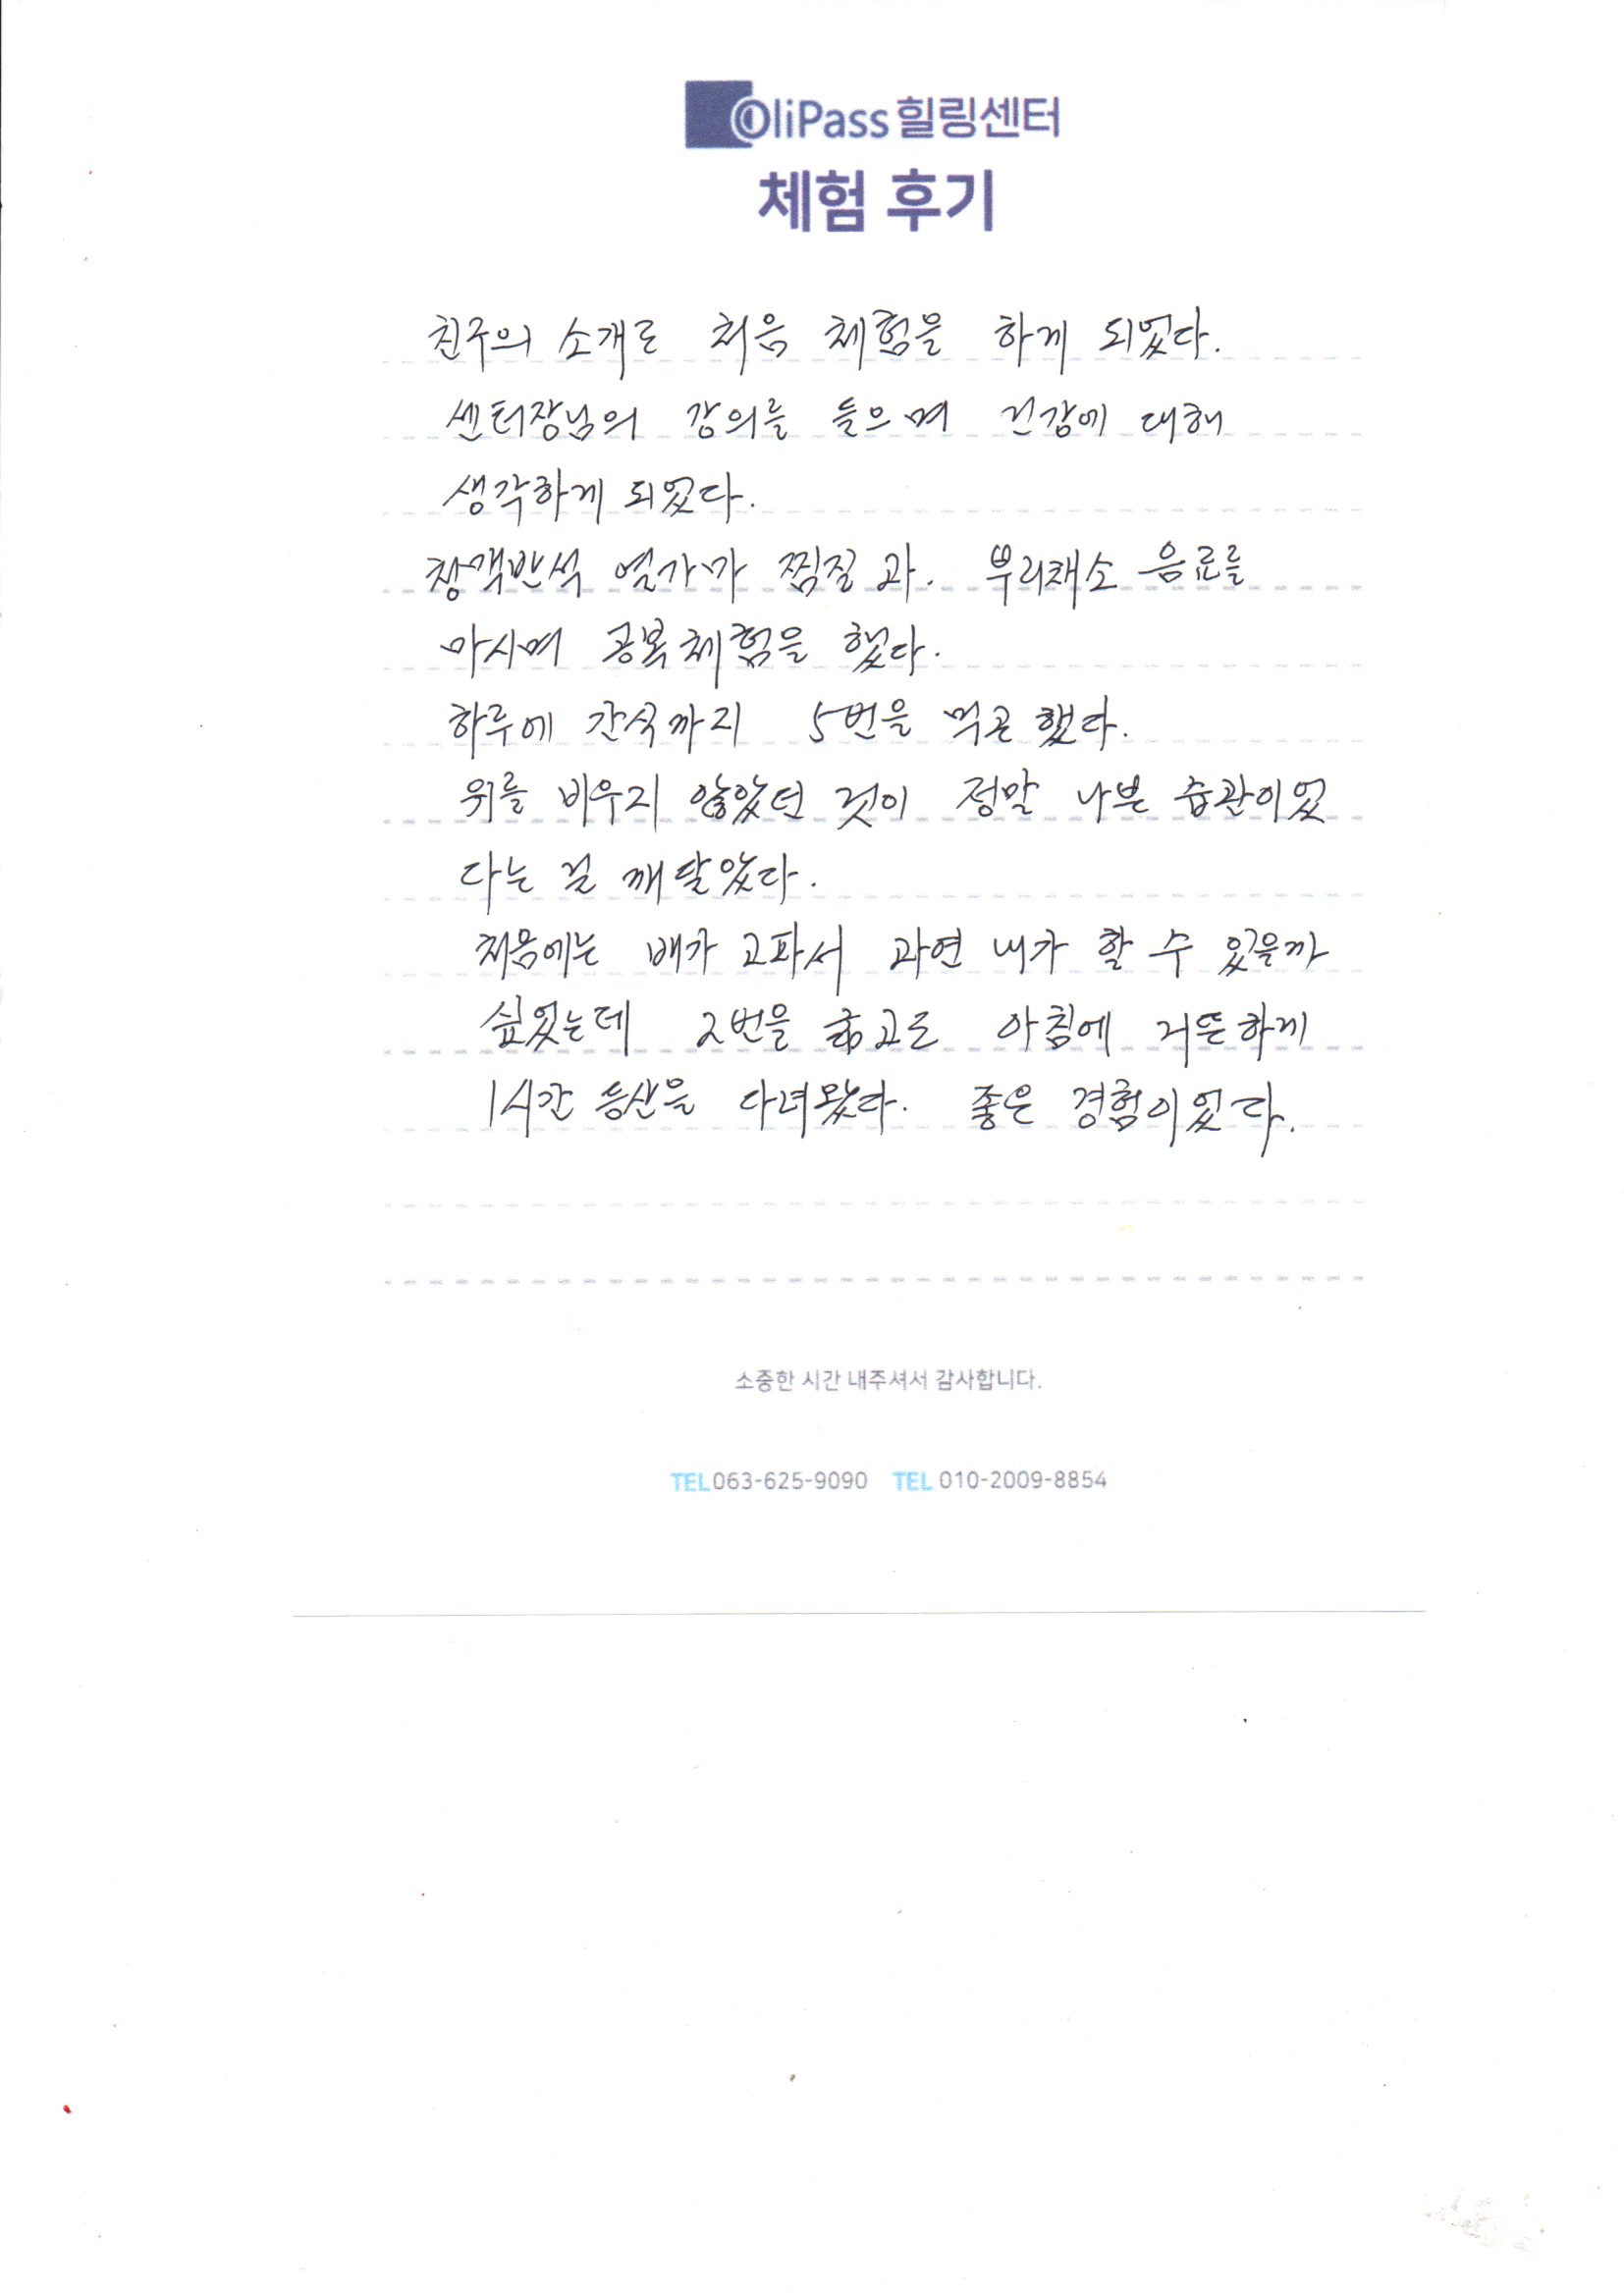 OliPass 힐링센터
체험 후기
친구의 소개로 처음 체험을 하게 되었다.
센터장님의 강의를 들으며 건강에 대해
생각하게 되었다.
청맥반석 열가마 찜질과. 뿌리채소 음료를
마시며 공복체험을 했다.
하루에 간식까지 5번을 먹곤 했다.
위를 비우지 않았던 것이 정말 나쁜 습관이었
다는 걸 깨달았다.
처음에는 배가 고파서 과연 내가 할 수 있을까
싶었는데 2번을 굶고도 아침에 거뜬하게
1시간 등산을 다녀왔다. 좋은 경험이었다.
소중한 시간 내주셔서 감사합니다.
TEL 063-625-9090 TEL 010-2009-8854